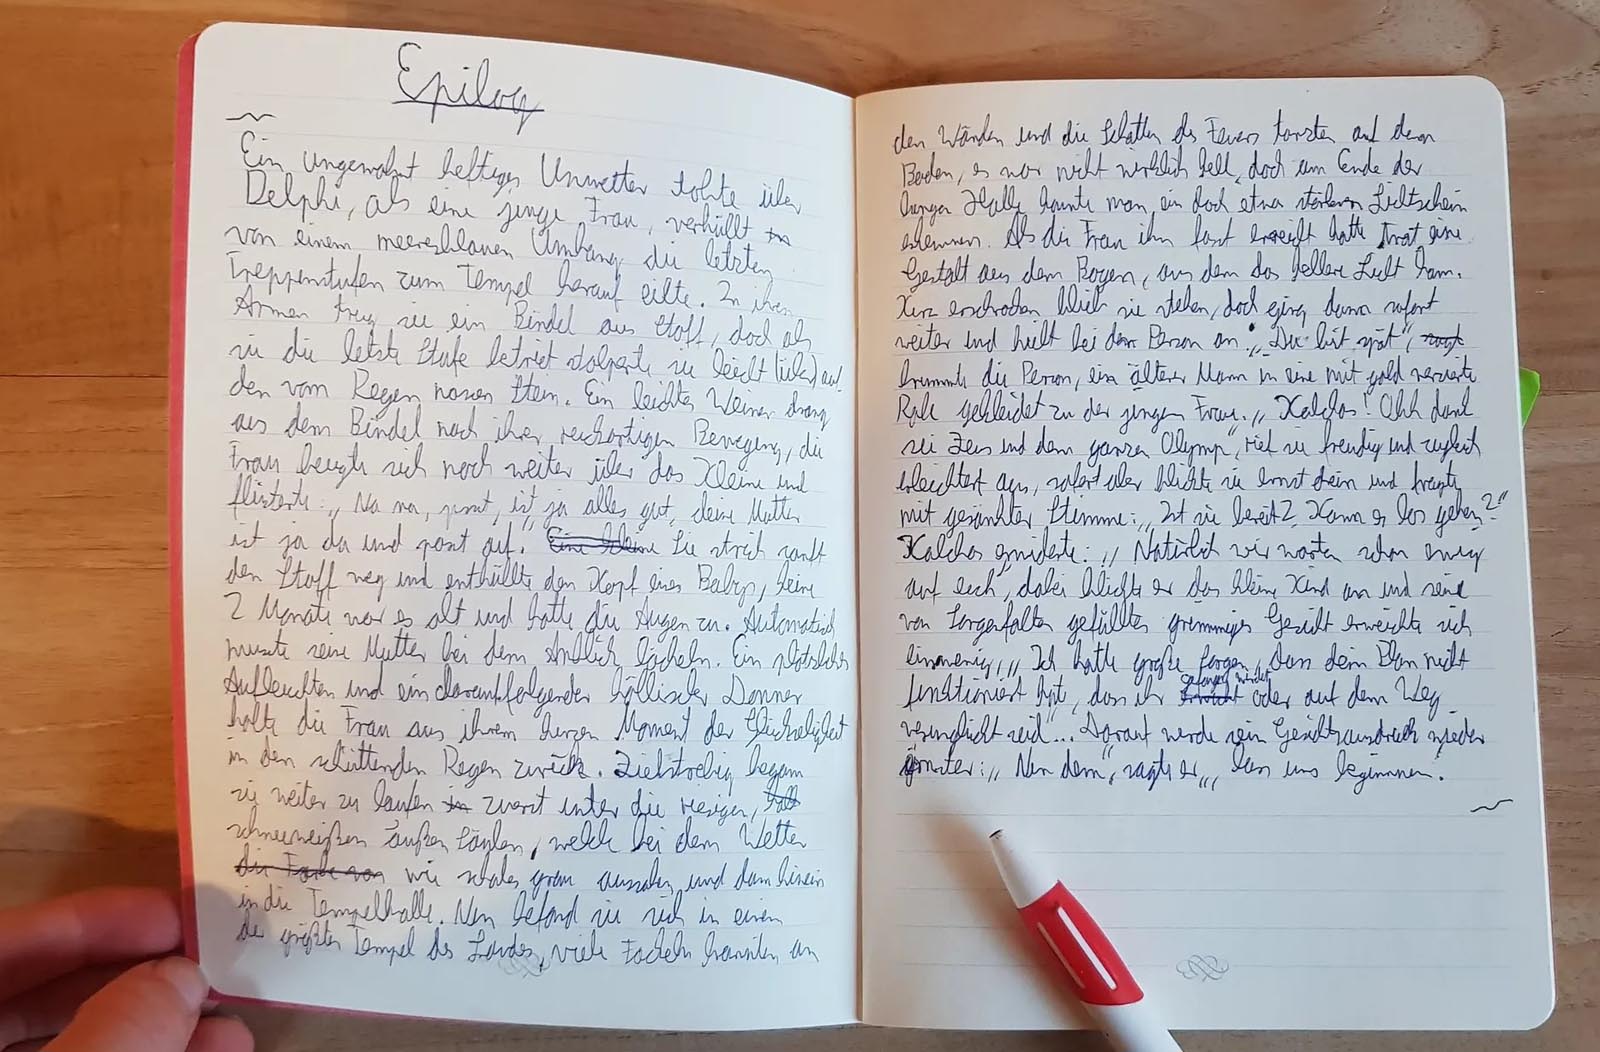 Epilog
Ein ungewohnt heftiges Unwetter tobte über
Delphi, als eine junge Frau, verhüllt
von einem meeresblauen Umhang die letzten
Treppenstufen zum Tempel herauf eilte. In ihren
Armen trug sie ein Bündel aus Stoff, doch als
sie die letzte Stufe betriet stolperte sie leicht (über) auf
den vom Regen nassen Stein. Ein leichtes Weinen drang
aus dem Bündel nach ihrer Bewegung, die
Frau beugte sich noch weiter über das Kleine und
flüsterte: „Na na, psst, ist ja alles gut, deine Mutter
ist ja da und passt auf." Eine kleine Sie strich sanft
den Stoff weg und enthüllte den Kopf eines Babys, keine
2 Monate war es alt und hatte die Augen zu. Automatisch
musste seine Mutter bei dem Anblick lächeln. Ein plötzliches
Aufleuchten und ein darauffolgender höllischer Donner
holte die Frau aus ihrem kurzen Moment der Glückseligkeit
in den schüttenden Regen zurück. Zielstrebig begann
sie weiter zu laufen in zuerst unter die riesigen,
schneeweißen äußen Säulen, welche bei dem Wetter
die Farbe von wie schales grau aussahen und dann hinein
in die Tempelhalle. Nun befand sie sich in einem
der größten Tempel des Landes, viele Fackeln brannten an
den Wänden und die Schatten des Feuers tanzten auf dem
Boden, es war nicht wirklich hell, doch am Ende der
langen Halle konnte man ein doch etwas stärkeren Lichtschein
erkennen. Als die Frau ihn fast erreicht hatte trat eine
Gestalt aus dem Bogen, aus dem das hellere Licht kam.
Kurz erschrocken blieb sie stehen, doch ging dann sofort
weiter und hielt bei der Person an. „Du bist spät",
brummte die Person, ein älterer Mann in eine mit gold verzierte
Robe gekleidet zu der jungen Frau. „Kalchas! Ohh dank
sei Zeus und dem ganzen Olymp", rief sie freudig und zugleich
erleichtert aus, sofort aber blickte sie ernst drein und fragte
mit gesenkter Stimme: „Ist sie bereit? Kann es los gehen?"
Kalchas erwiderte: „Natürlich wir warten schon ewig
auf euch, dabei blickte er das kleine Kind an und seine
von Sorgenfalten gefülltes grimmiges Gesicht erweichte sich
ein wenig, „Ich hatte große Sorgen, dass dein Plan nicht
funktioniert hat, dass ihr gefangen wurdet oder auf dem Weg
verunglückt seid... Darauf wurde sein Gesichtsausdruck wieder
ernster: „Nun denn", sagte er, „lass uns beginnen.